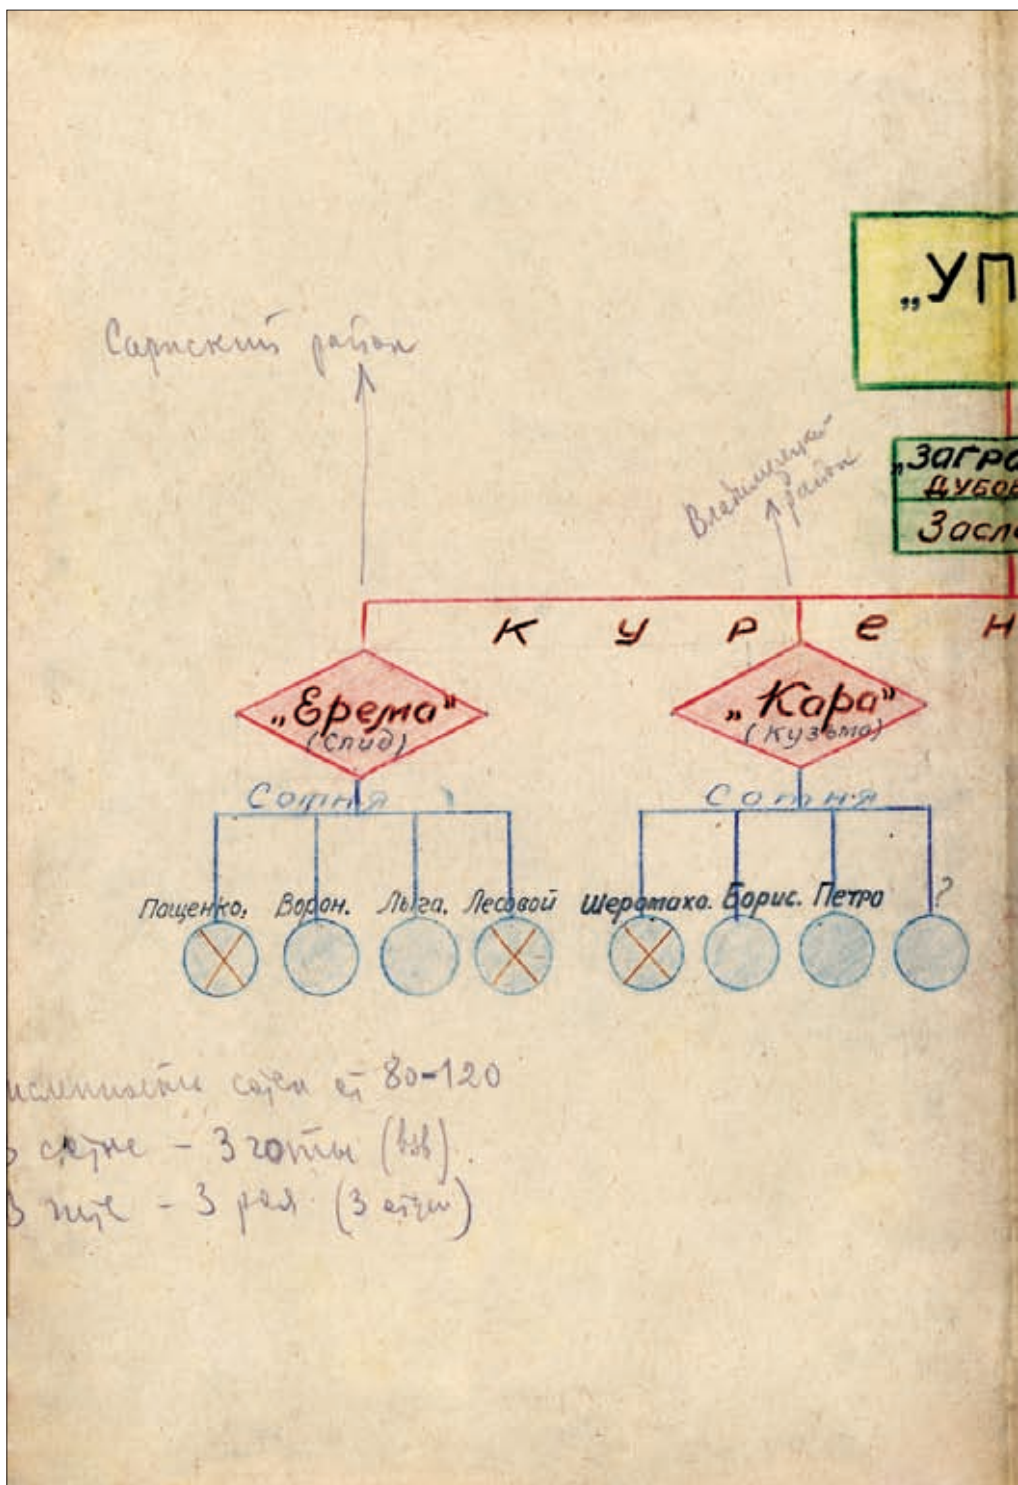 „УП
Сарнский район
„ЗАГРА
ДУБОВ
Засла
Владимирецкий
район
К У Р е Н
„Ерема“
(Слид)
„Кара“
(Кузьма)
Сотня
Сотня
Пащенко. Ворон. Лыга. Лесовой Шеромаха. Борис. Петро ?
сотен от 80-120
сотне - 3 чоты (взв).
В чоте - 3 роя (3 отдел)